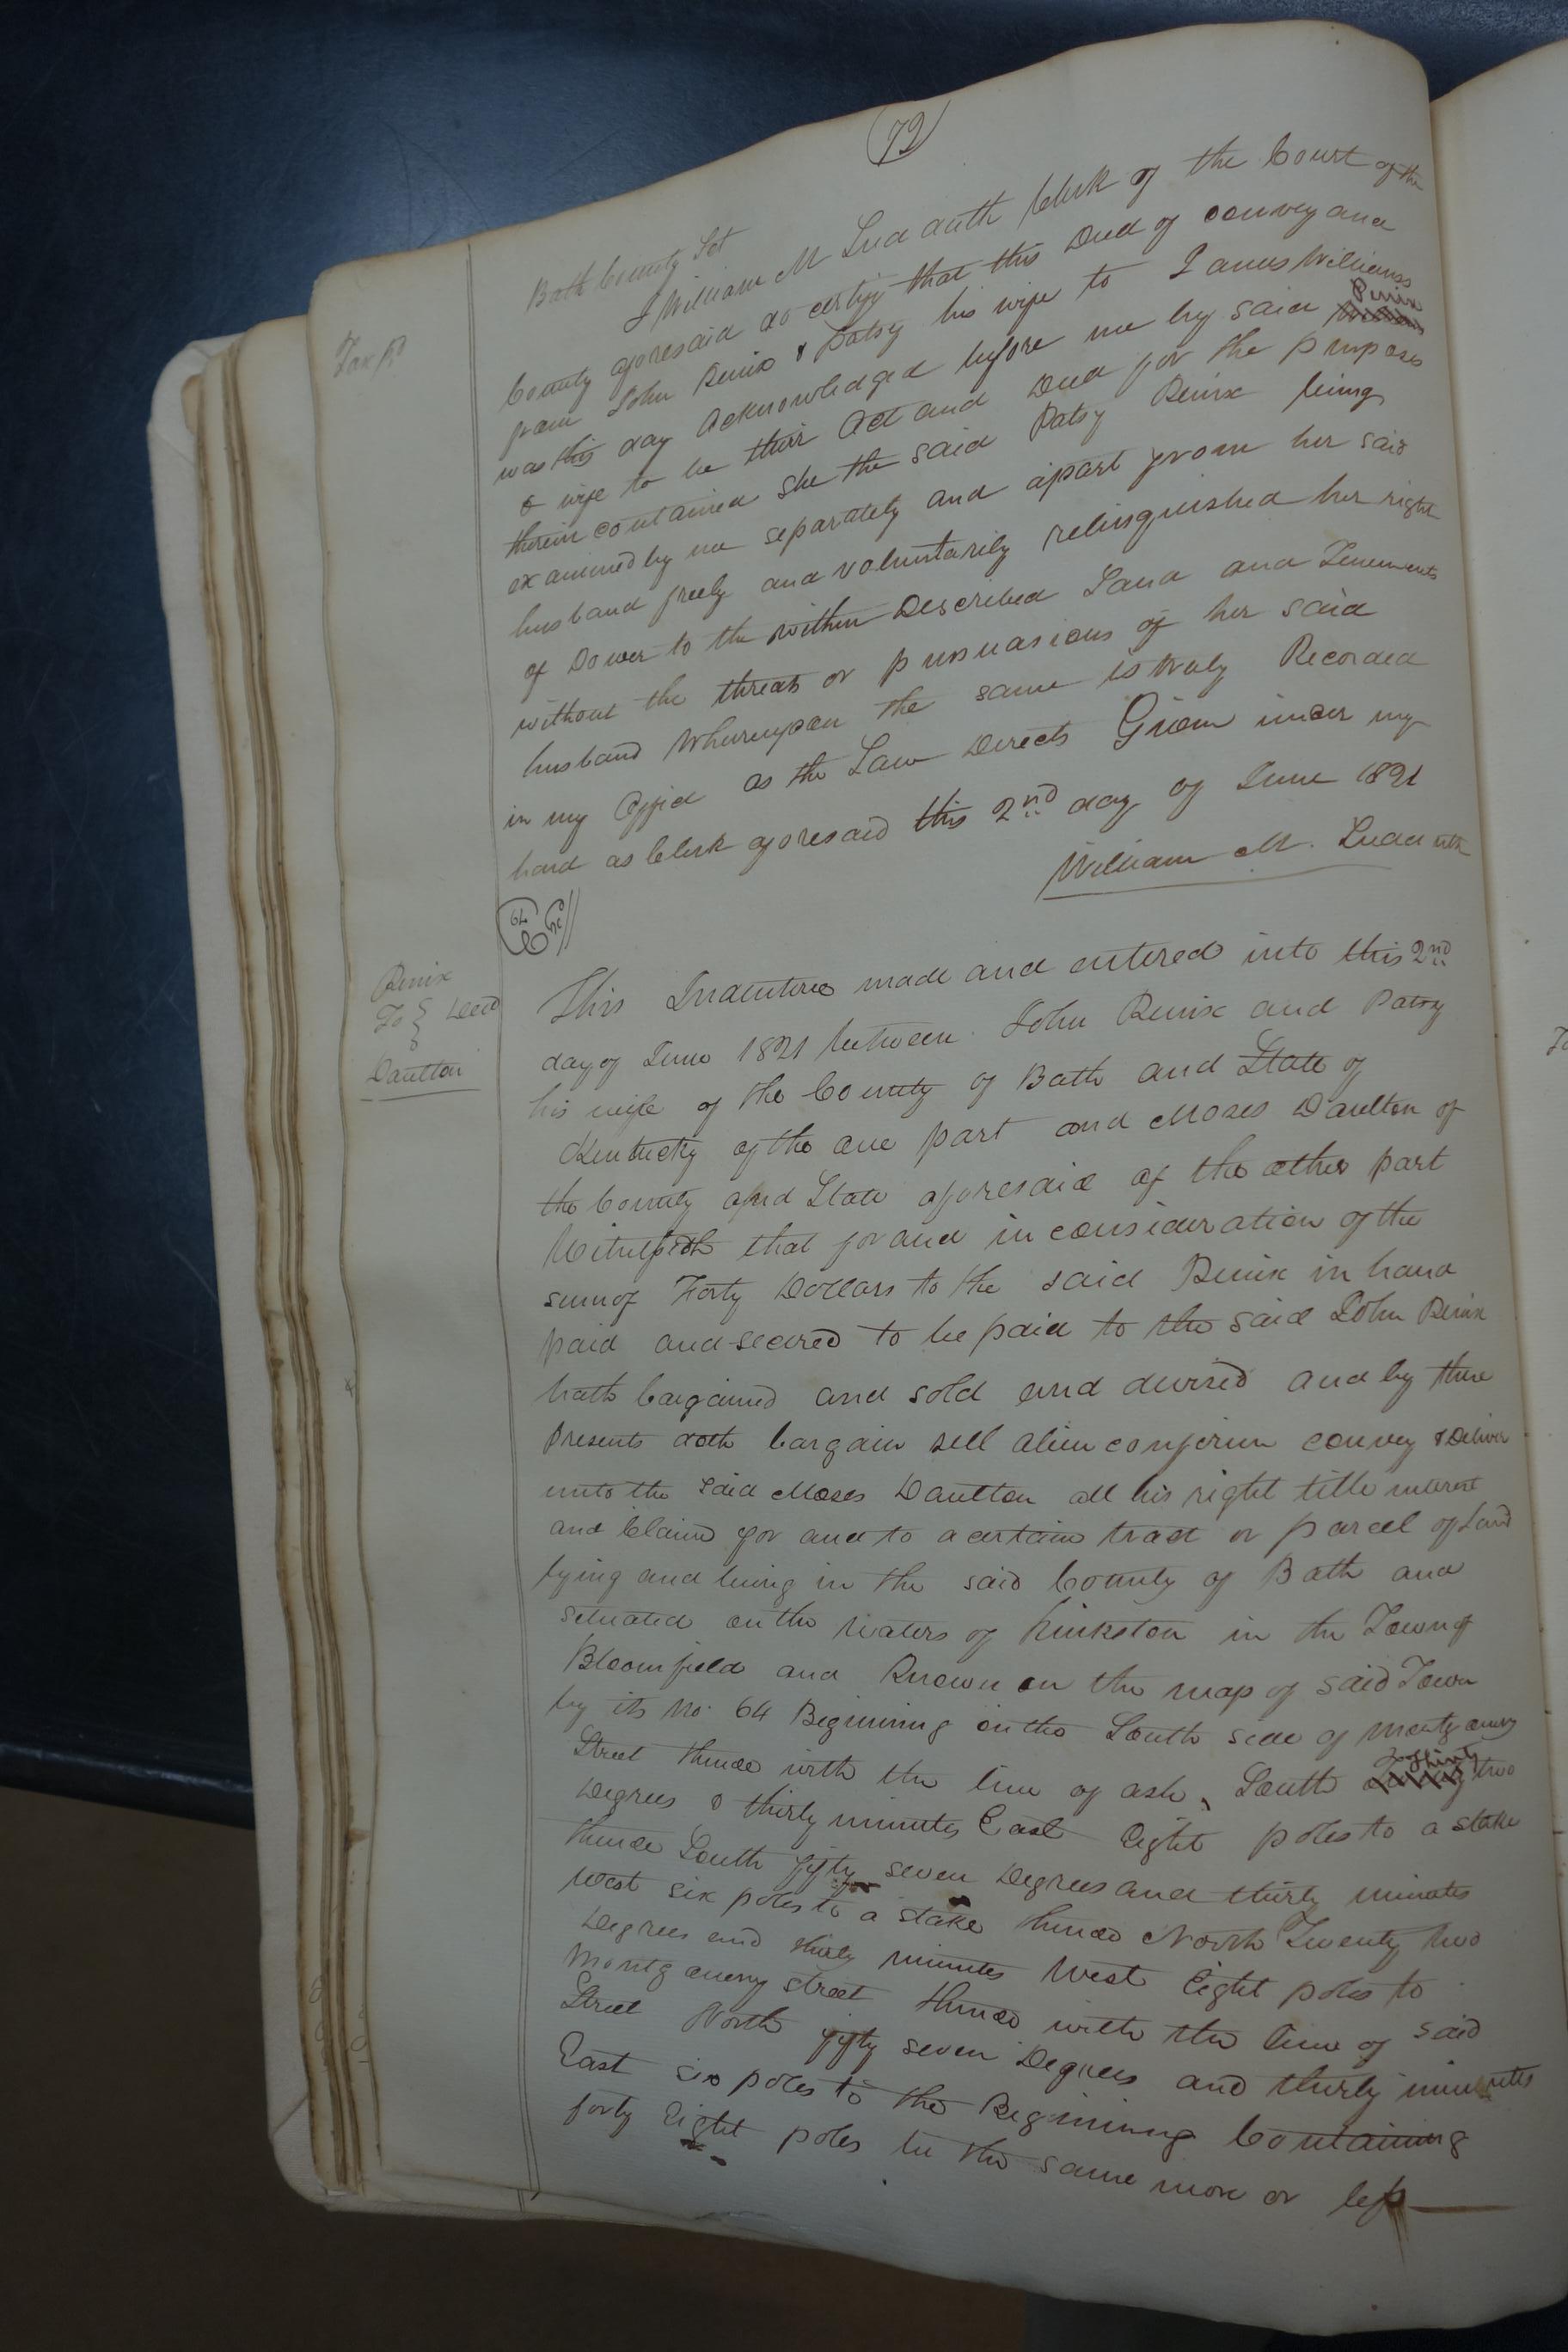 (72)
Bath County Sct
I William M Sudduth Clerk of the Court of the
County aforesaid do certify that this Deed of conveyance
from John Renix & Patsy his wife to James Williams
was this day Acknowledged before me by said Renix
& wife to be their Act and Deed for the purposes
therein contained she the said Patsy Renix being
examined by me separately and apart from her said
husband freely and voluntarily relinquished her right
of Dower to the within Described Land and Tenements
without the threats or pursuasions of her said
husband Whereupon the same is truly Recorded
in my Office as the Law Directs Given under my
hand as Clerk aforesaid this 2nd day of June 1821
William M. Sudduth
Tax pd
Renix
To } Deed
Daulton
This Indenture made and entered into this 2nd
day of June 1821 between John Renix and Patsy
his wife of the County of Bath and State of
Kentucky of the one part and Moses Daulton of
the County and State aforesaid of the other part
Witnesseth that for and in consideration of the
sum of Forty Dollars to the said Renix in hand
paid and secured to be paid to the said John Renix
hath bargained and sold and devised and by these
presents doth bargain sell alien confirm convey & Deliver
unto the said Moses Daulton all his right title interest
and Claim for and to a certain tract or parcel of Land
lying and being in the said County of Bath and
situated on the waters of Hinkston in the Town of
Bloomfield and Known on the map of said Town
by its No. 64 Begining on the South side of Montgomery
Street thence with the line of ash, South two
Degrees & thirty minutes East Eight poles to a stake
thence South fifty seven Degrees and thirty minutes
West six poles to a stake thence North Twenty two
Degrees and thirty minutes West Eight poles to
Montgomery street thence with the line of said
Street North fifty seven Degrees and thirty minutes
East six poles to the Begining Containing
forty Eight poles be the same more or less